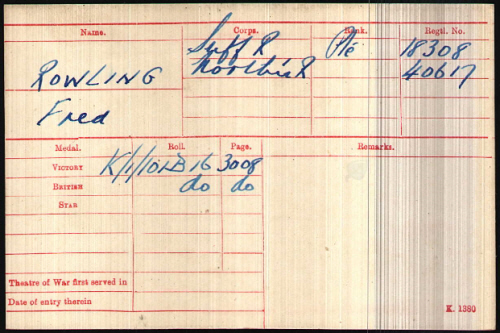 Name. Corps. Rank. Regtl. No.
ROWLING Suff R Pte 18308
Fred 40617
Medal. Roll. Page. Remarks.
VICTORY K/1/101B16 3008
BRITISH do do
STAR
Theatre of War first served in
Date of entry therein
K. 1380